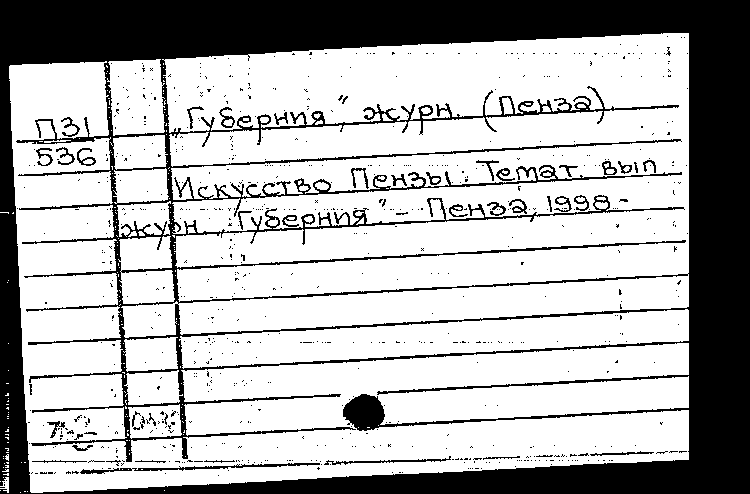 П31
536
„Губерния", журн. (Пенза).
Искусство Пензы: Темат. вып
журн. „Губерния". – Пенза, 1998 -